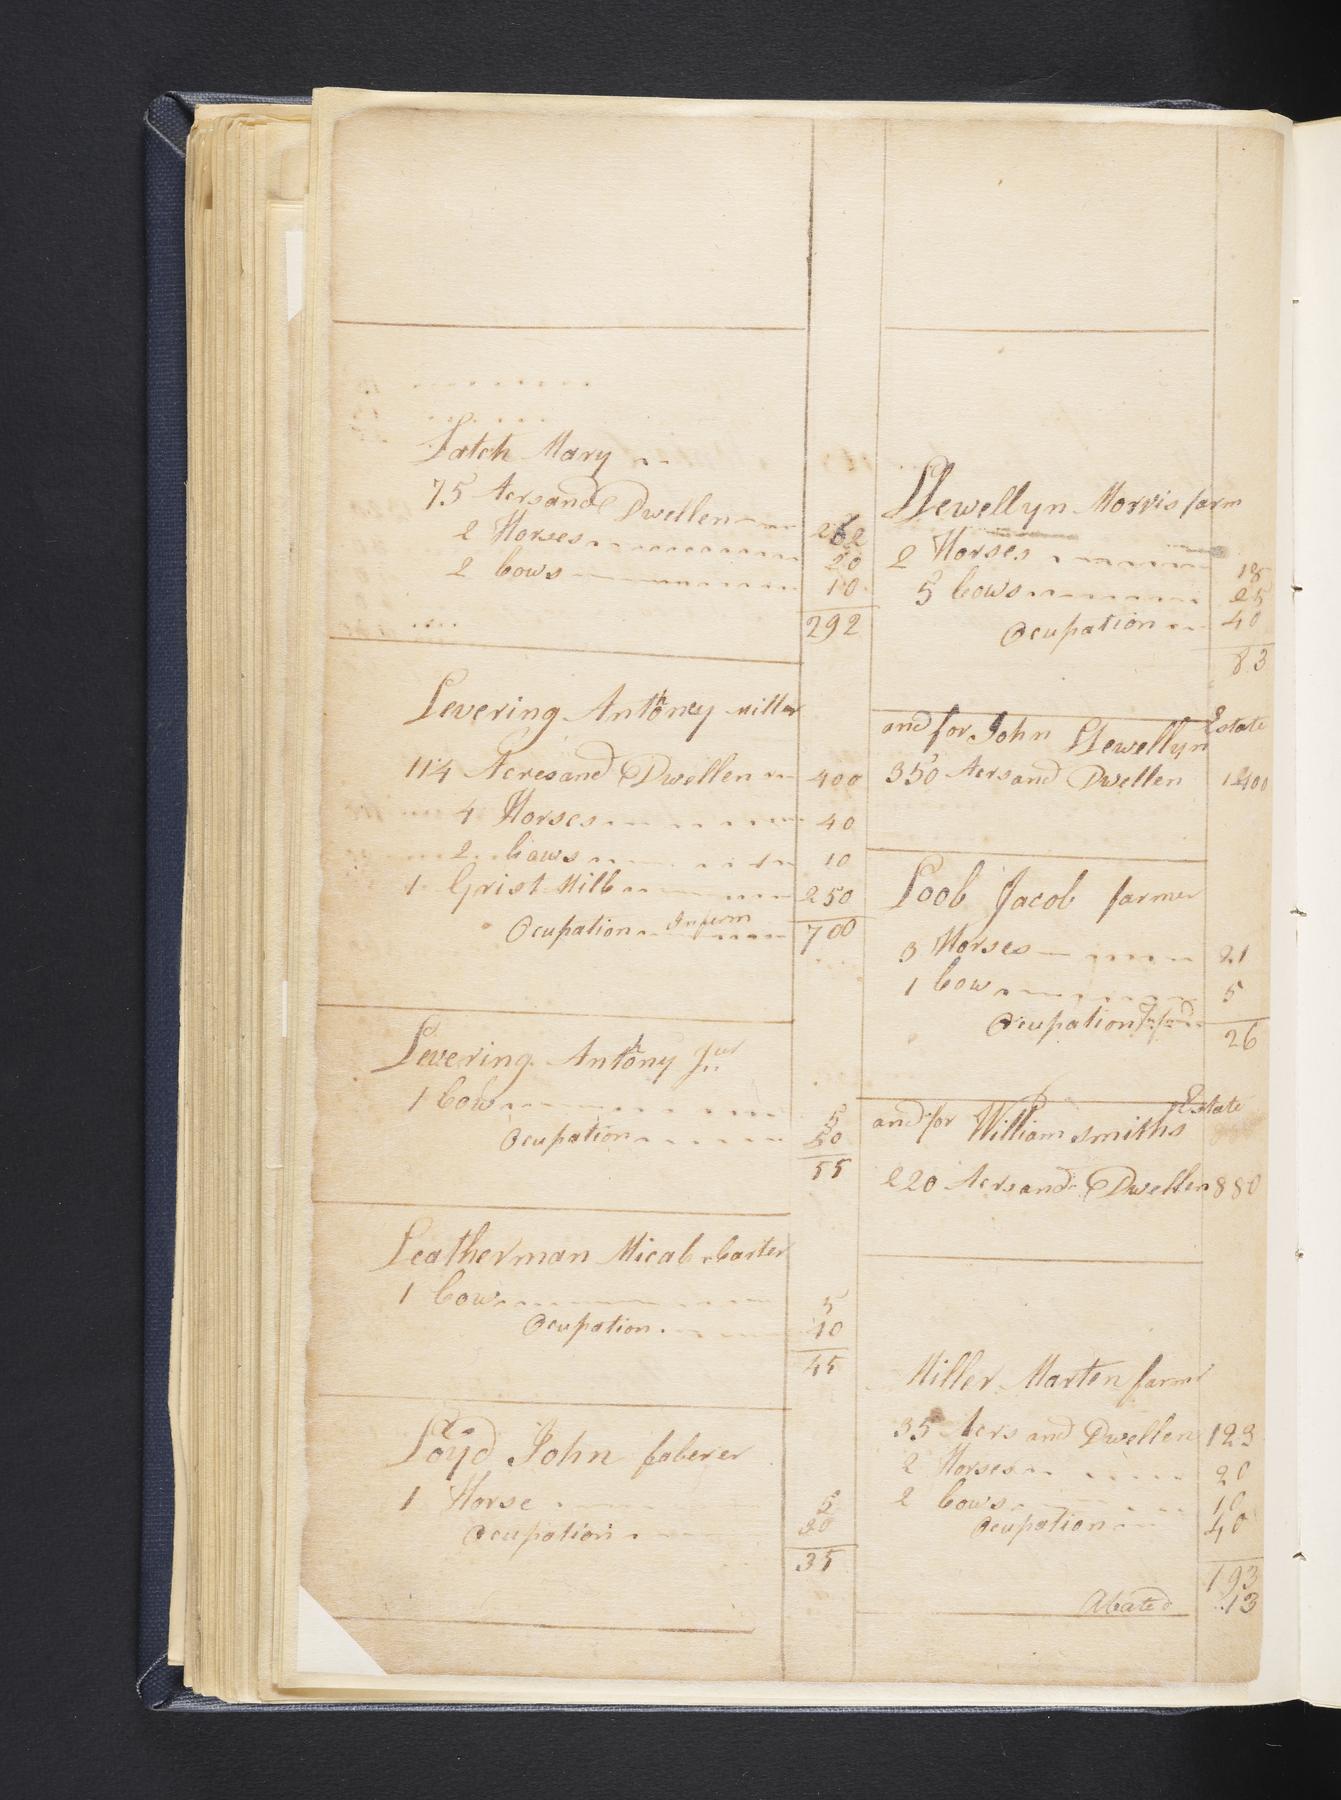 Latch Mary
75 Acrs and Dwellen 262
2 Horses 20
2 Cows 10
292
Levering Anthoney miller
114 Acres and Dwellen 400
4 Horses 40
2 Cows 10
1 Grist Mill 250
Ocupation Infirm 700
Levering Anthony Jur
1 Cow 5
Ocupation 50
55
Leatherman Mical Carter
1 Cow 5
Ocupation 40
45
Loyd John laberer
1 Horse 5
Ocupation 30
35
Llewellyn Morris farm
2 Horses 18
5 Cows 25
Ocupation 40
83
and for John Llewellyn Estate
350 Acrs and Dwellen 1400
Loob Jacob farmer
3 Horses 21
1 Cow 5
Ocupation
26
and for William smiths Estate
220 Acrs and Dwellen 880
Miller Marten farmr
35 Acrs and Dwellen 123
2 Horses 20
2 Cows 10
Ocupation 40
193
Abated 13